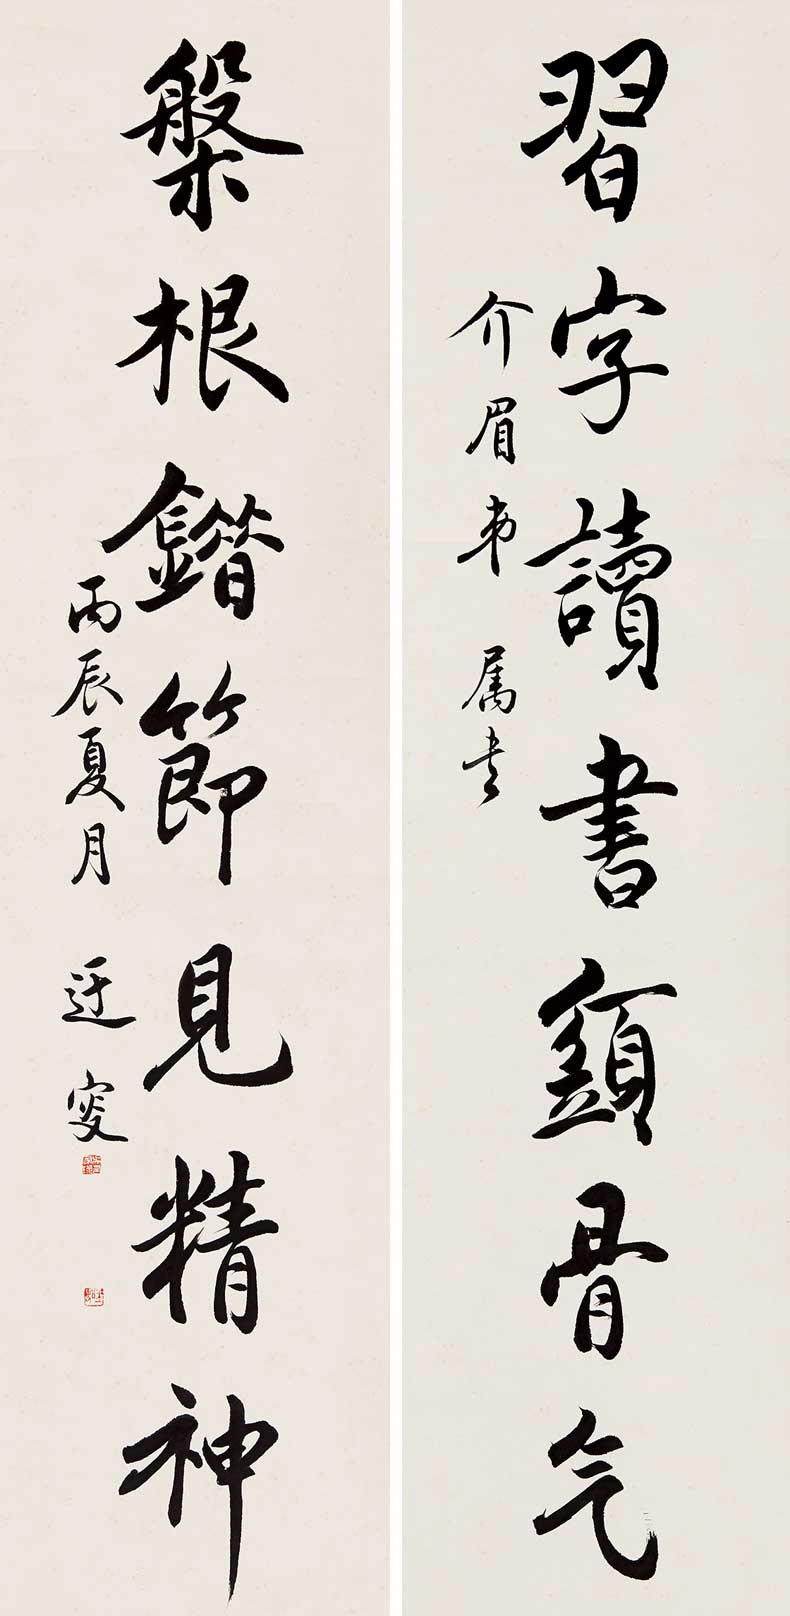 習字讀書顯骨气
介眉弟 属书
槃根錯節見精神
丙辰夏月 迂叜